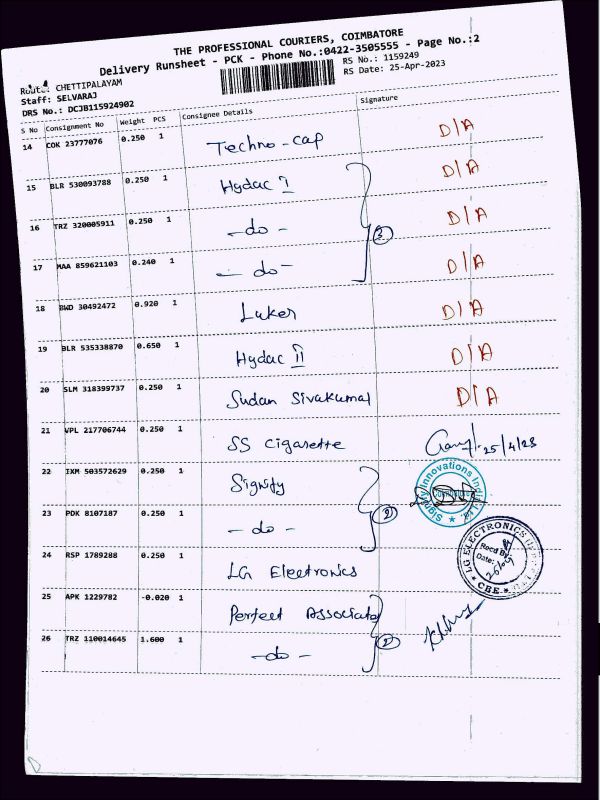 THE PROFESSIONAL COURIERS, COIMBATORE
Delivery Runsheet - PCK - Phone No.:0422-3505555 - Page No.:2
Route: CHETTIPALAYAM
RS No.: 1159249
Staff: SELVARAJ
RS Date: 25-Apr-2023
DRS No.: DCJB115924902
S No Consignment No Weight PCS Consignee Details Signature
14 COK 23777076 0.250 1 Techno-cap D/A
15 BLR 530093788 0.250 1 Hydac I D/A
16 TRZ 320005911 0.250 1 -do- D/A
3
17 MAA 859621103 0.240 1 -do- D/A
18 BWD 30492472 0.920 1 Luker D/A
19 BLR 535338870 0.650 1 Hydac II D/A
20 SLM 318399737 0.250 1 Sudan Sivakumar D/A
21 VPL 217706744 0.250 1 SS Cigarette 25/4/23
22 IXM 503572629 0.250 1 Signify
Signify Innovations India
23 PDK 8107187 0.250 1 -do-
2
24 RSP 1789288 0.250 1 LG Electronics
LG ELECTRONICS
Recd By
Date:
CBE
25 APK 1229782 -0.020 1 Perfect Associate
26 TRZ 110014645 1.600 1 -do-
2